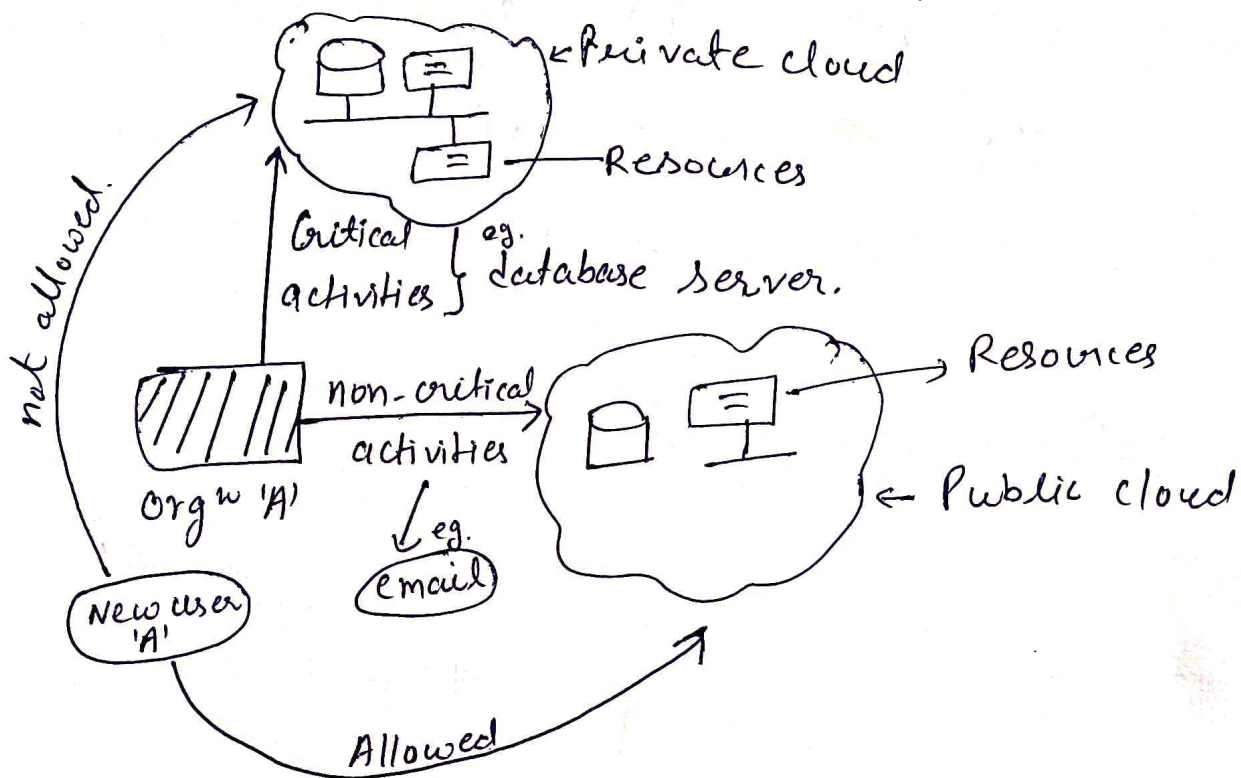 Private cloud
Resources
not allowed.
Critical
activities
eg.
database server.
Resources
non-critical
activities
Orgn 'A'
Public cloud
eg.
email
New user
'A'
Allowed